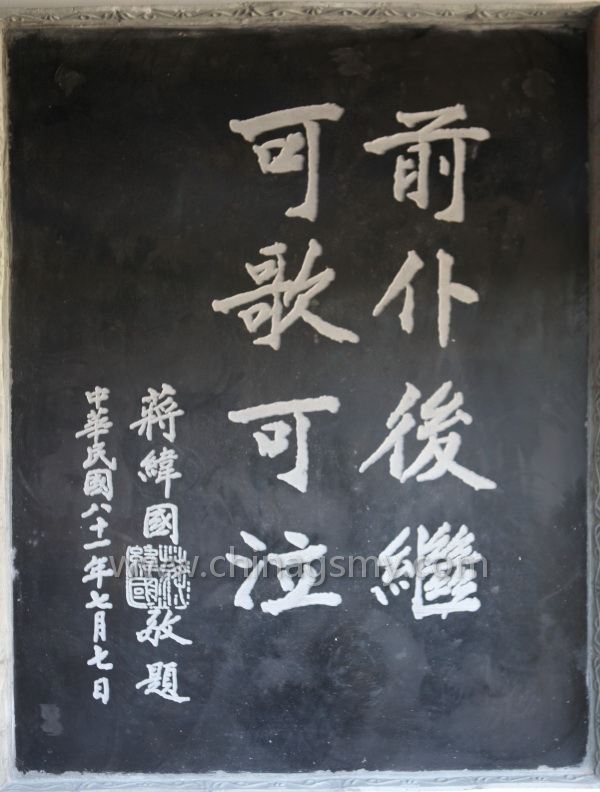 前仆後繼
可歌可泣
蔣緯國敬題
中華民國八十一年七月七日
蔣緯國
www.chinagsmy.com